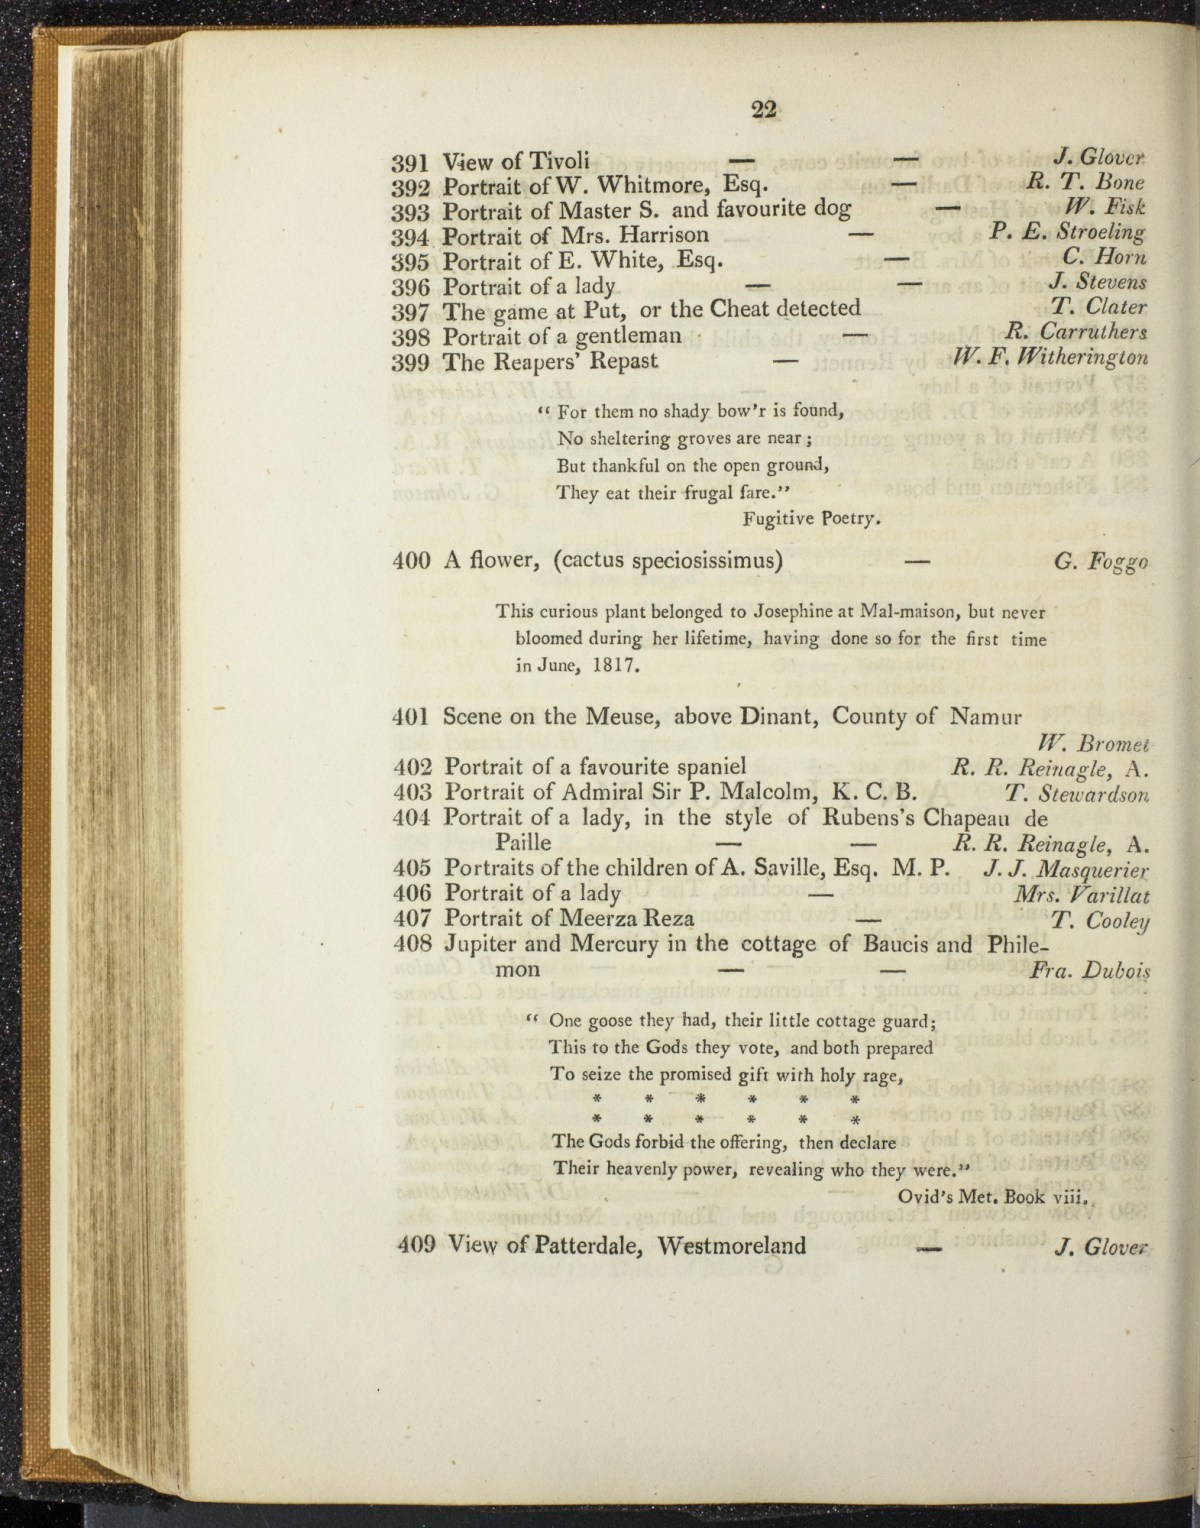 22
391 View of Tivoli — — J. Glover
392 Portrait of W. Whitmore, Esq. — R. T. Bone
393 Portrait of Master S. and favourite dog — W. Fisk
394 Portrait of Mrs. Harrison — P. E. Stroeling
395 Portrait of E. White, Esq. — C. Horn
396 Portrait of a lady — — J. Stevens
397 The game at Put, or the Cheat detected T. Clater
398 Portrait of a gentleman — R. Carruthers
399 The Reapers' Repast — W. F. Witherington
“ For them no shady bow'r is found,
No sheltering groves are near ;
But thankful on the open ground,
They eat their frugal fare.”
Fugitive Poetry.
400 A flower, (cactus speciosissimus) — G. Foggo
This curious plant belonged to Josephine at Mal-maison, but never
bloomed during her lifetime, having done so for the first time
in June, 1817.
401 Scene on the Meuse, above Dinant, County of Namur
W. Bromet
402 Portrait of a favourite spaniel R. R. Reinagle, A.
403 Portrait of Admiral Sir P. Malcolm, K. C. B. T. Stewardson
404 Portrait of a lady, in the style of Rubens's Chapeau de
Paille — — R. R. Reinagle, A.
405 Portraits of the children of A. Saville, Esq. M. P. J. J. Masquerier
406 Portrait of a lady — Mrs. Varillat
407 Portrait of Meerza Reza — T. Cooley
408 Jupiter and Mercury in the cottage of Baucis and Phile-
mon — — Fra. Dubois
“ One goose they had, their little cottage guard;
This to the Gods they vote, and both prepared
To seize the promised gift with holy rage,
* * * * * *
* * * * * *
The Gods forbid the offering, then declare
Their heavenly power, revealing who they were.”
Ovid's Met. Book viii.
409 View of Patterdale, Westmoreland — J. Glover